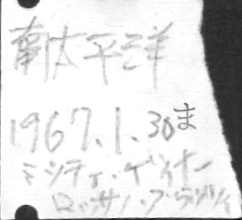 南太平洋
1967.1.30ま
ミッティ・ゲイナー
ロッサノ・ブラッツィ